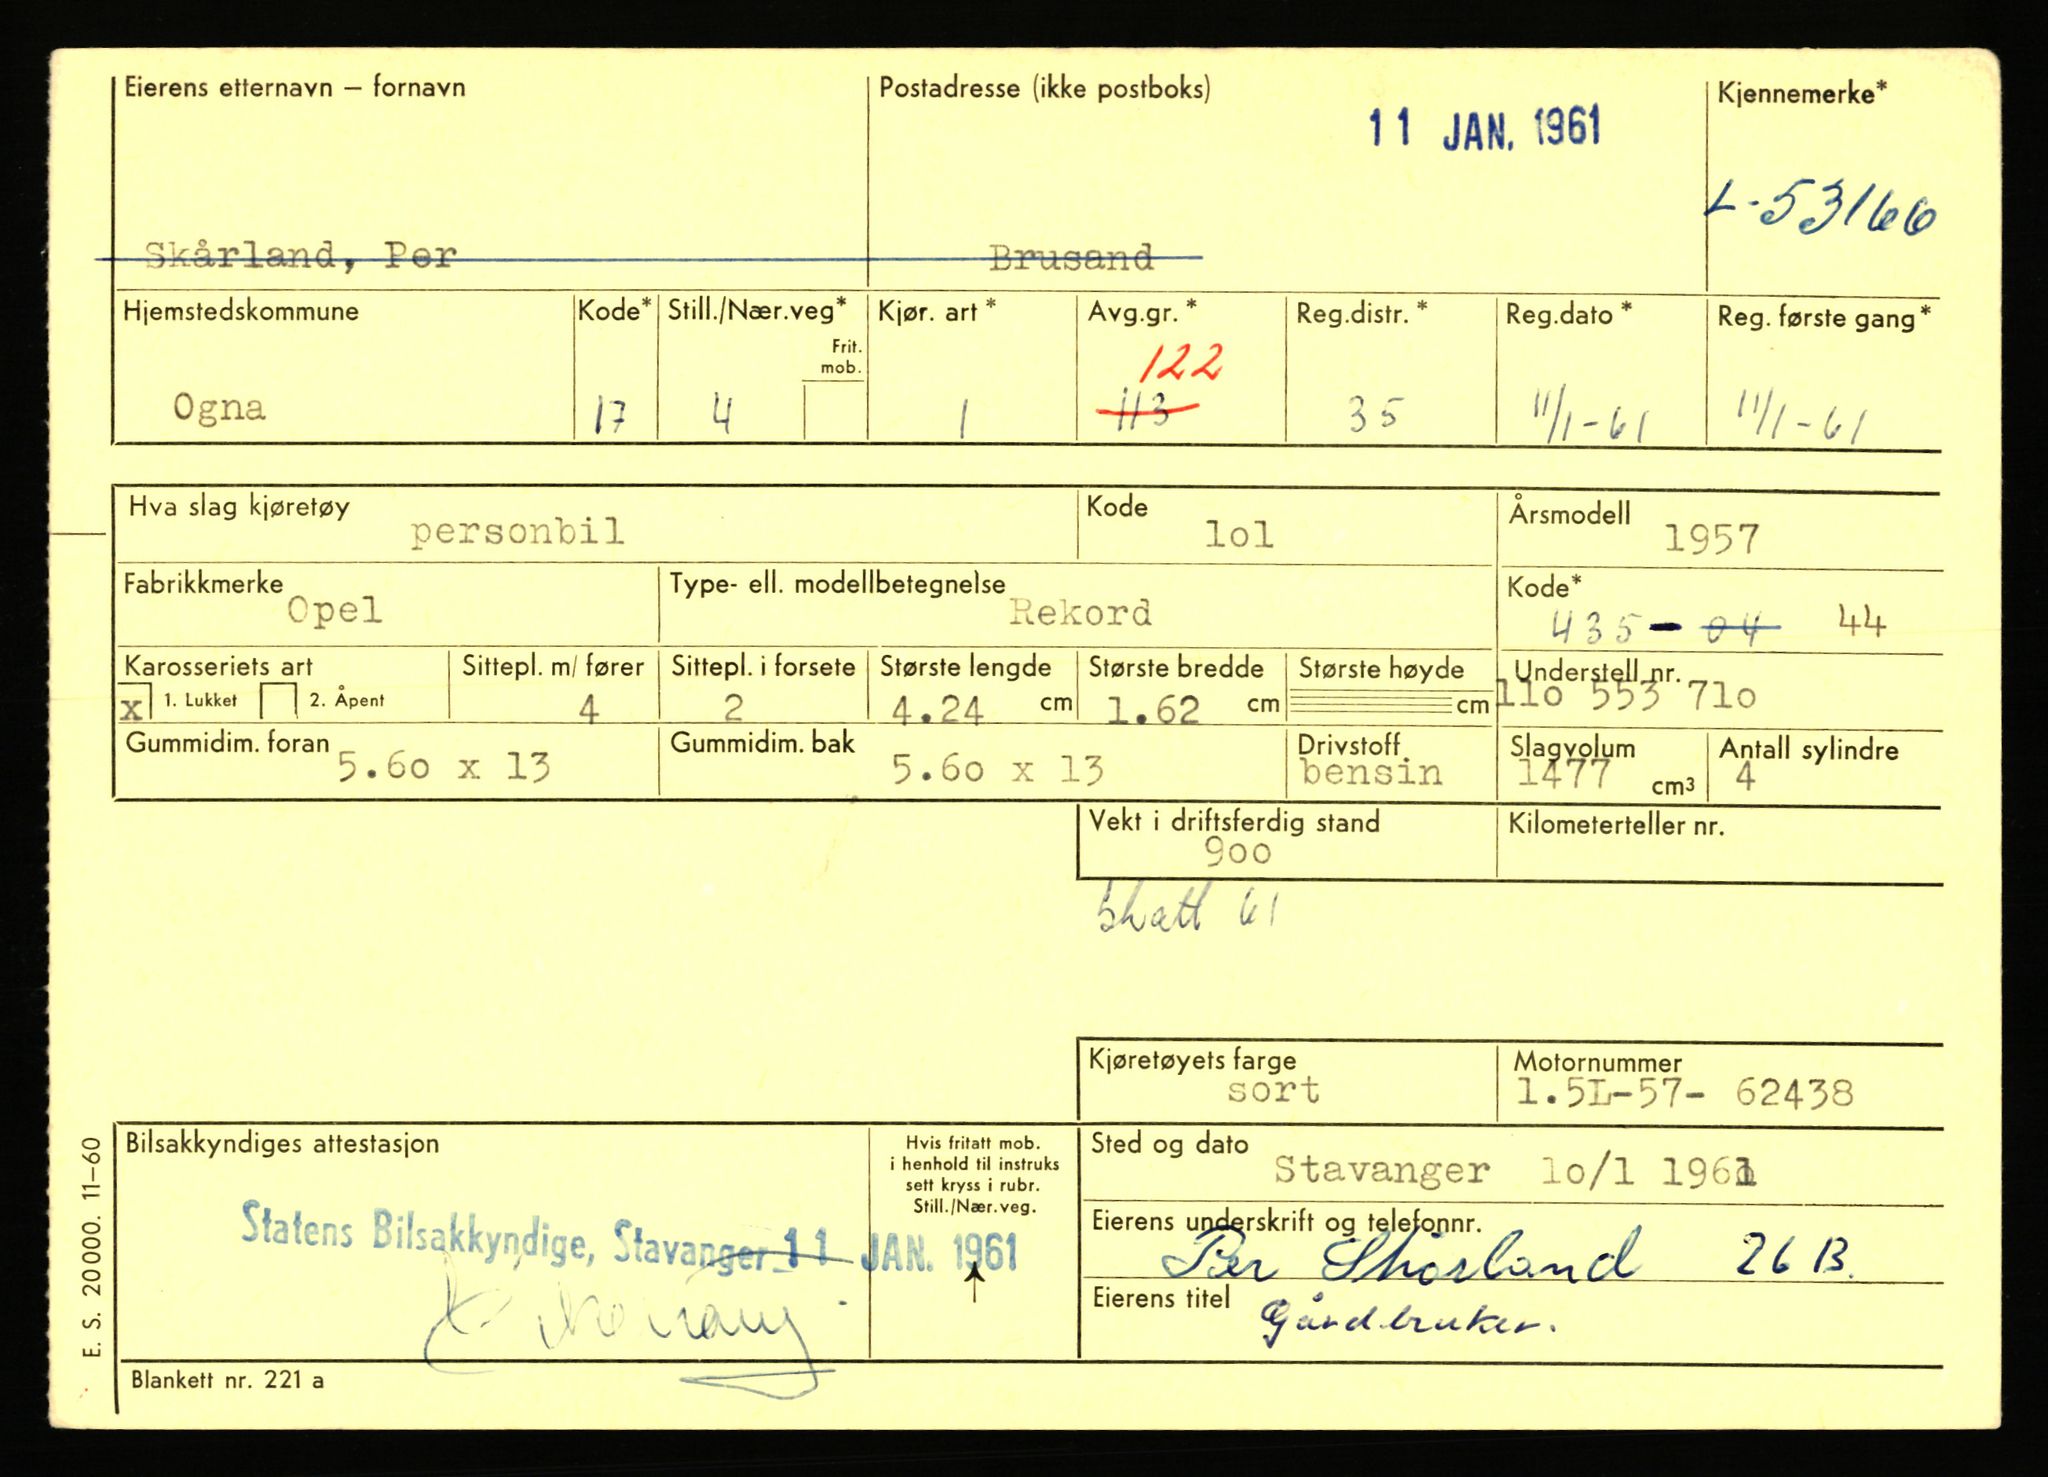 Eierens etternavn – fornavn
Postadresse (ikke postboks)
11 JAN. 1961
Kjennemerke*
L-53166
Skårland, Per
Brusand
Hjemstedskommune
Kode*
Still./Nær.veg*
Frit.
mob.
Kjør. art *
Avg.gr. *
Reg.distr. *
Reg.dato *
Reg. første gang*
122
Ogna
17
4
1
113
35
11/1-61
11/1-61
Hva slag kjøretøy
personbil
Kode
lol
Årsmodell
1957
Fabrikkmerke
Opel
Type- ell. modellbetegnelse
Rekord
Kode*
435 - 04 44
Karosseriets art
x 1. Lukket 2. Åpent
Sittepl. m/ fører
4
Sittepl. i forsete
2
Største lengde
4.24 cm
Største bredde
1.62 cm
Største høyde
cm
Understell nr.
llo 553 71o
Gummidim. foran
5.6o x 13
Gummidim. bak
5.6o x 13
Drivstoff
bensin
Slagvolum
1477 cm³
Antall sylindre
4
Vekt i driftsferdig stand
9oo
Kilometerteller nr.
Skatt 61
Kjøretøyets farge
sort
Motornummer
1.5L-57- 62438
Bilsakkyndiges attestasjon
Statens Bilsakkyndige, Stavanger 11 JAN. 1961
Hvis fritatt mob.
i henhold til instruks
sett kryss i rubr.
Still./Nær.veg.
Sted og dato
Stavanger lo/1 1961
Eierens underskrift og telefonnr.
Per Skårland 26 B.
Eierens titel
Gårdbruker.
Blankett nr. 221 a
E. S. 20000. 11–60